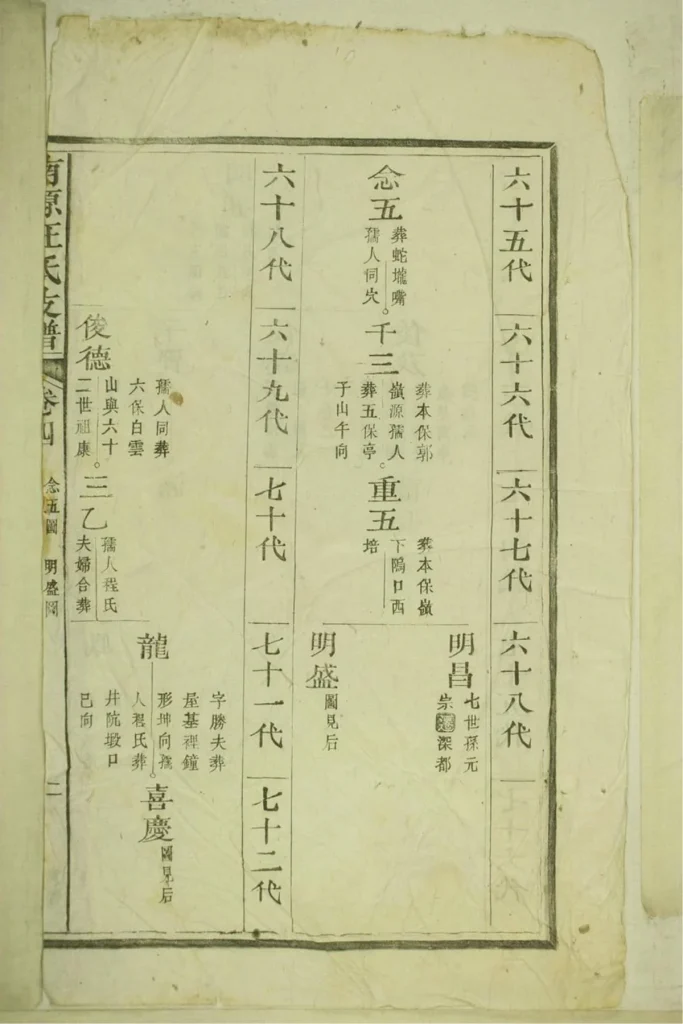 六十五代
六十六代
六十七代
六十八代
念五
葬蛇壠嘴
孺人同穴
千三
葬本保郭
嶺源孺人
葬五保亭
于山午向
重五
葬本保嶺
下隖口西
培
明昌
七世孫元
宗遷深都
明盛
圖見后
六十八代
六十九代
七十代
七十一代
七十二代
俊德
孺人同葬
六保白雲
山與六十
二世祖康
三乙
孺人程氏
夫婦合葬
龍
字勝夫葬
屋基裡鐘
形坤向孺
人程氏葬
井阬墩口
巳向
喜慶
圖見后
南源汪氏支譜
卷四
念五圖
明盛圖
二